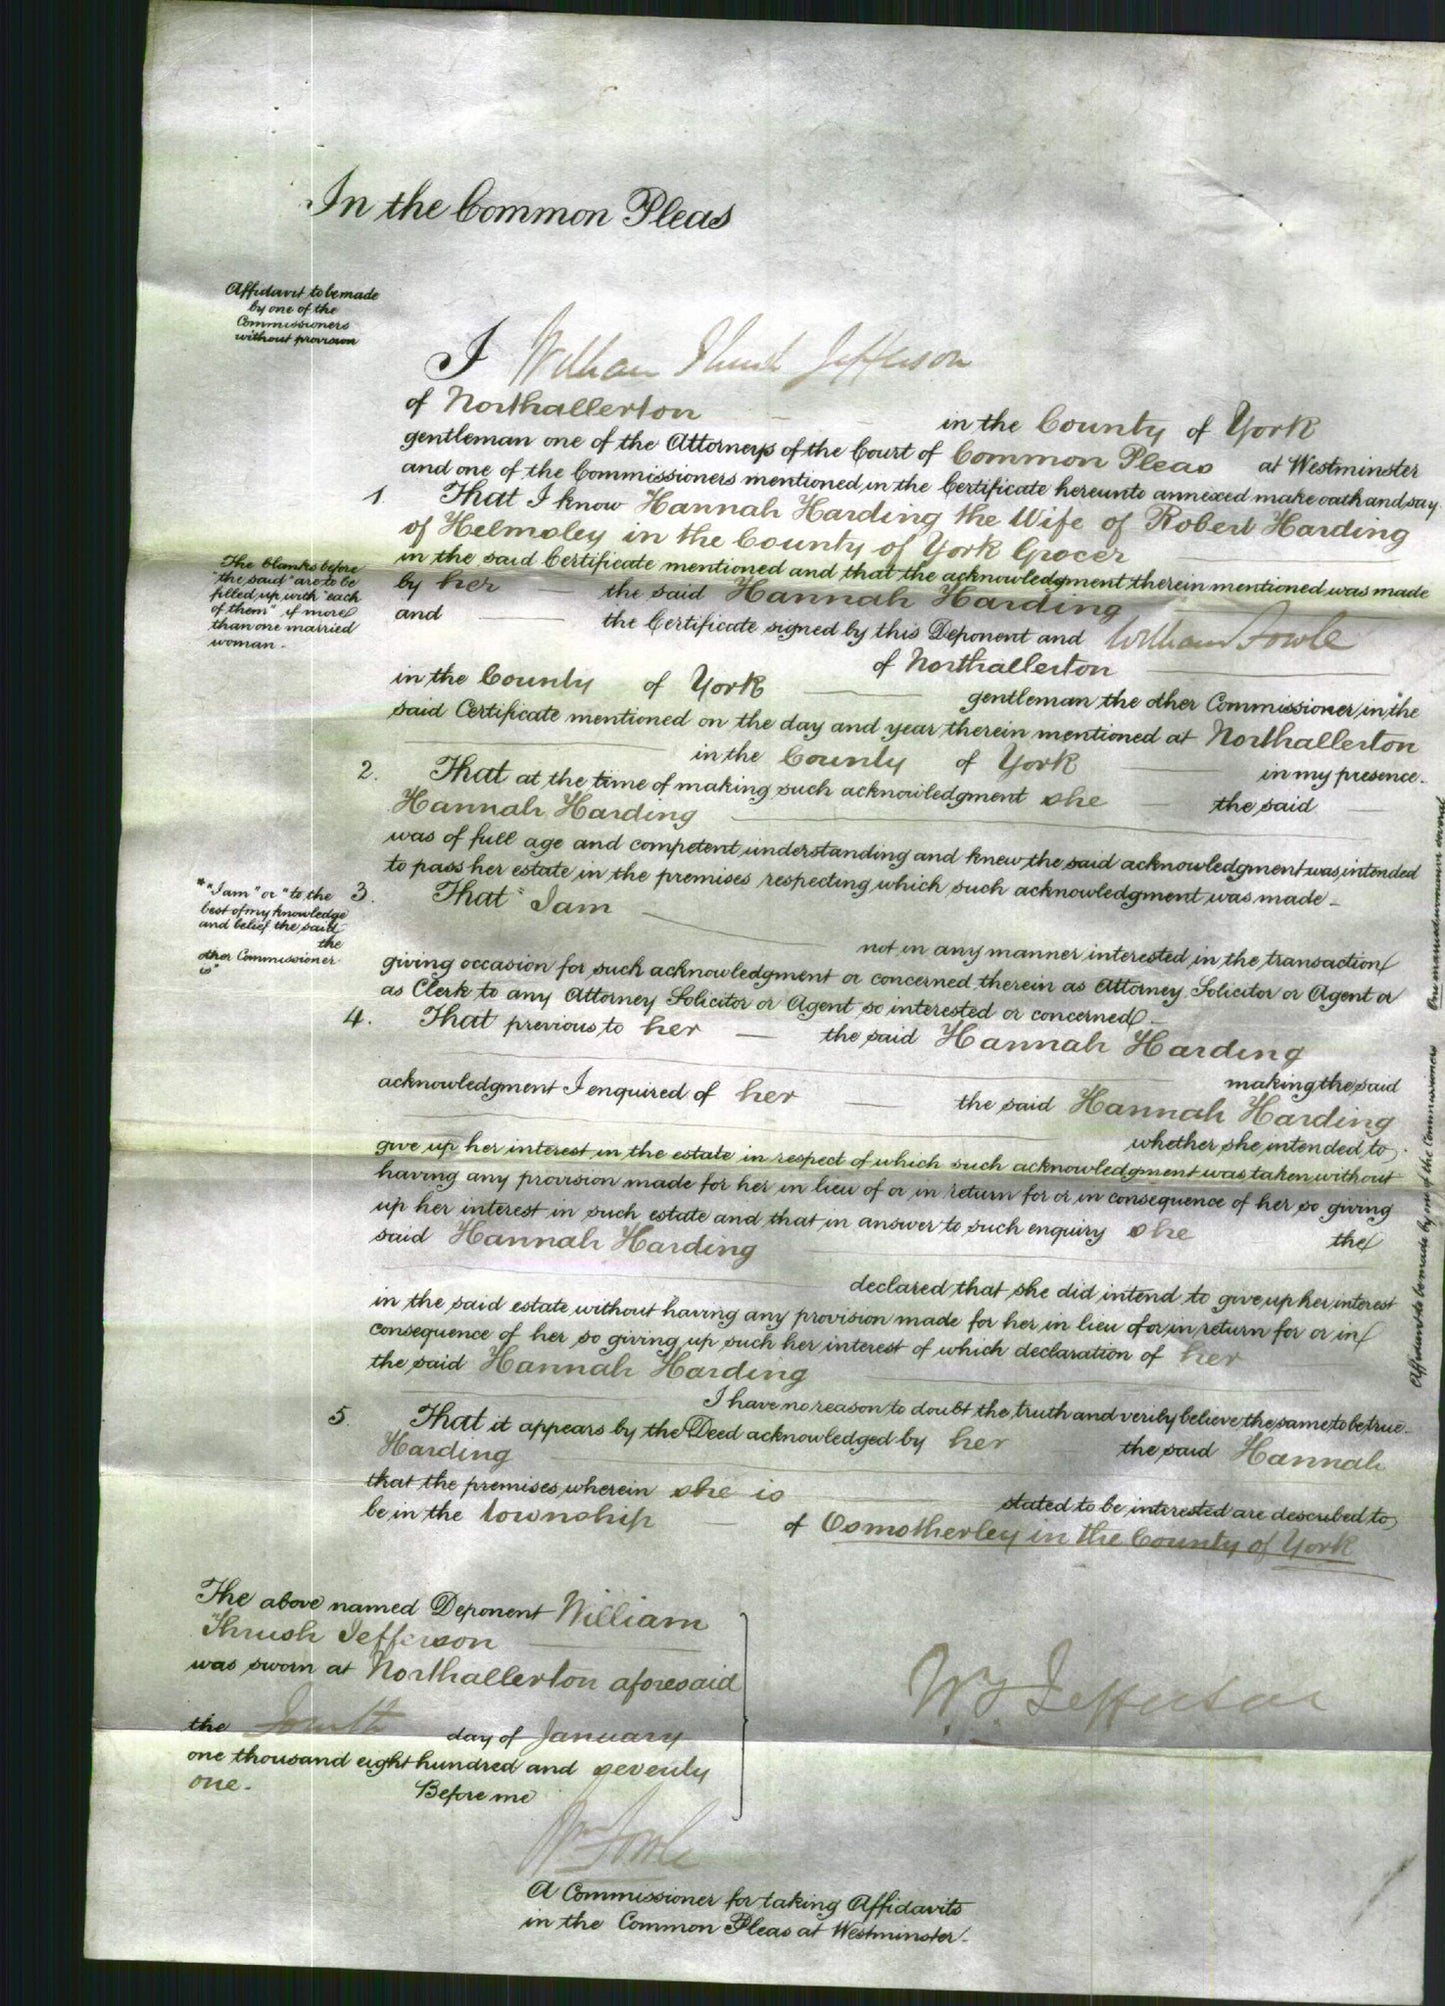 In the Common Pleas
Affidavit to be made
by one of the
Commissioners
without provision
I William Thrush Jefferson
of Northallerton in the County of York
gentleman one of the Attorneys of the Court of Common Pleas at Westminster
and one of the Commissioners mentioned in the Certificate hereunto annexed make oath and say
1. That I know Hannah Harding the Wife of Robert Harding
of Helmsley in the County of York Grocer
in the said Certificate mentioned and that the acknowledgment therein mentioned was made
The blanks before
"the said" are to be
filled up with "each
of them" if more
than one married
woman.
by her the said Hannah Harding
and the Certificate signed by this Deponent and William Fowle
of Northallerton
in the County of York gentleman the other Commissioner in the
said Certificate mentioned on the day and year therein mentioned at Northallerton
in the County of York in my presence.
2. That at the time of making such acknowledgment she the said
Hannah Harding
was of full age and competent understanding and knew the said acknowledgment was intended
to pass her estate in the premises respecting which such acknowledgment was made
* "I am" or "to the
best of my knowledge
and belief the said
the
other Commissioner
is"
3. That * I am
not in any manner interested in the transaction
giving occasion for such acknowledgment or concerned therein as Attorney Solicitor or Agent or
as Clerk to any Attorney Solicitor or Agent so interested or concerned
4. That previous to her the said Hannah Harding
making the said
acknowledgment I enquired of her the said Hannah Harding
whether she intended to
give up her interest in the estate in respect of which such acknowledgment was taken without
having any provision made for her in lieu of or in return for or in consequence of her so giving
up her interest in such estate and that in answer to such enquiry she the
said Hannah Harding
declared that she did intend to give up her interest
in the said estate without having any provision made for her in lieu of or in return for or in
consequence of her so giving up such her interest of which declaration of her
the said Hannah Harding
I have no reason to doubt the truth and verily believe the same to be true.
5. That it appears by the Deed acknowledged by her the said Hannah
Harding
that the premises wherein she is stated to be interested are described to
be in the township of Osmotherley in the County of York
The above named Deponent William
Thrush Jefferson
was sworn at Northallerton aforesaid
the Fourth day of January
one thousand eight hundred and seventy
one. Before me
W. T. Jefferson
Wm Fowle
A Commissioner for taking Affidavits
in the Common Pleas at Westminster.
Affidavit to be made by one of the Commissioners One married woman